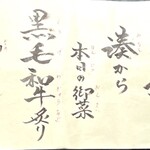 湊から
本日の御菜
黒毛和牛炙り